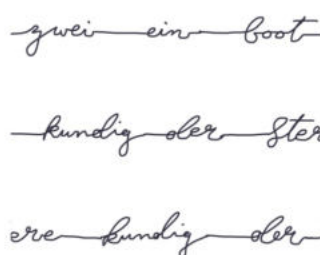 zwei ein boot
kundig der Ster
ere kundig der